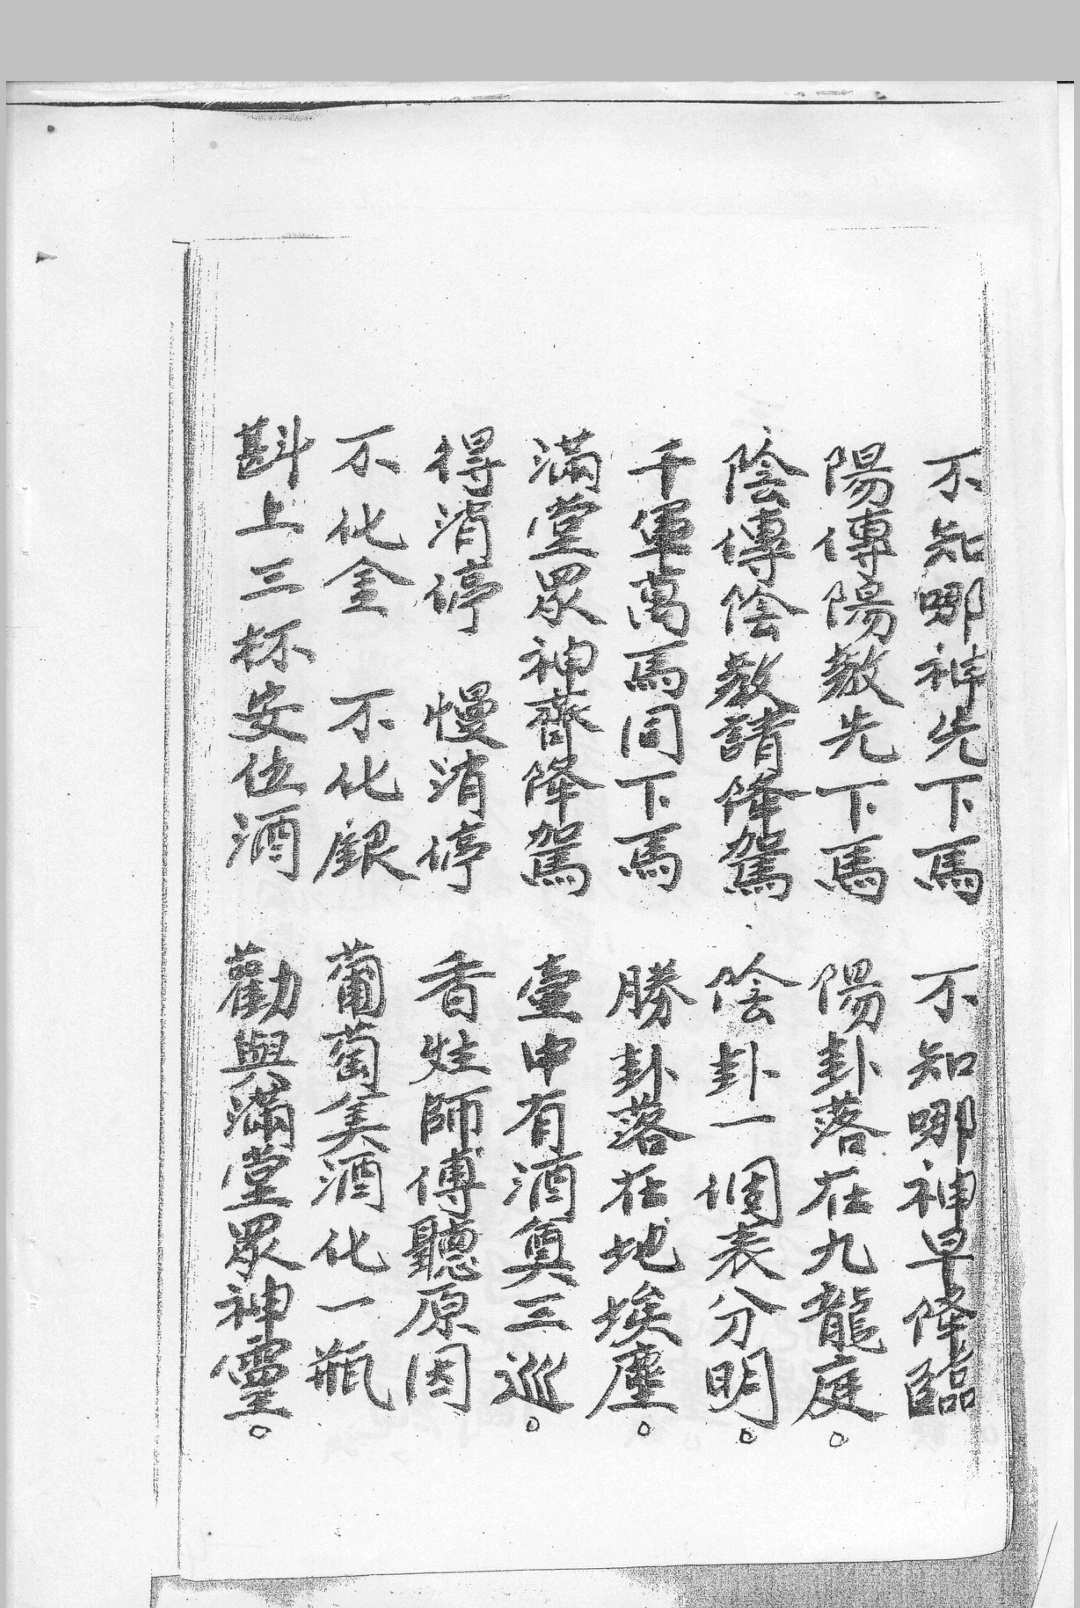 不知哪神先下馬 不知哪神早降臨
陽傳陽教先下馬 陽卦落在九龍庭。
陰傳陰教請降駕 陰卦一個表分明。
千軍萬馬同下馬 勝卦落在地埃塵。
滿堂眾神齊降駕 臺中有酒奠三巡。
得消停 慢消停 香炷師傅聽原因
不化金 不化銀 葡萄美酒化一瓶
斟上三杯安位酒 勸與滿堂眾神靈。